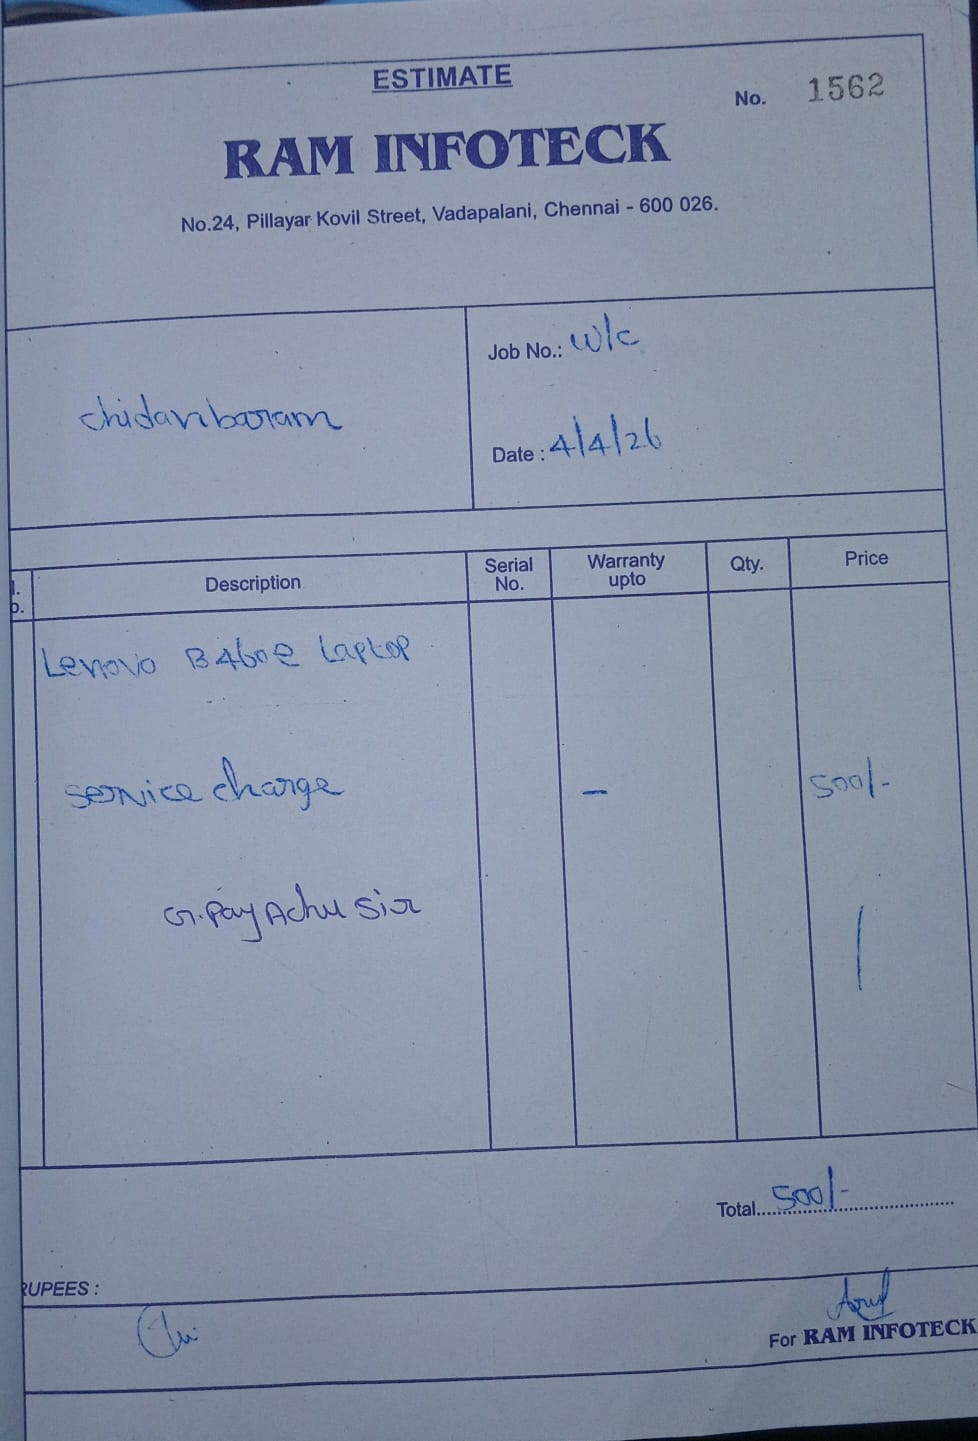 ESTIMATE
No. 1562
RAM INFOTECK
No.24, Pillayar Kovil Street, Vadapalani, Chennai - 600 026.
chidambaram
Job No.: w/c
Date : 4/4/26
Description
Serial No.
Warranty upto
Qty.
Price
Lenovo B460e Laptop
service charge - 500/-
G.Pay Achu Sir
Total 500/-
RUPEES :
For RAM INFOTECK